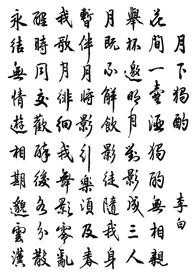 月下獨酌 李白
花間一壺酒獨酌無相親
舉杯邀明月對影成三人
月既不解飲影徒隨我身
暫伴月將影行樂須及春
我歌月徘徊我舞影零亂
醒時同交歡醉後各分散
永結無情遊相期邈雲漢